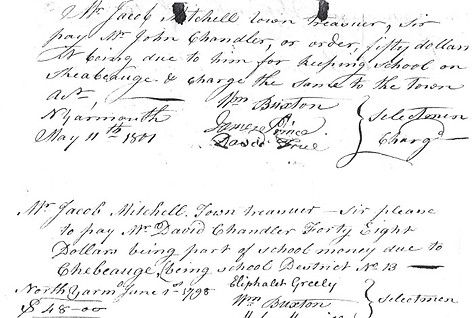 Mr Jacob Mitchell town treasurer, Sir
pay Mr John Chandler, or order, fifty dollars
It being due to him for keeping school on
Sheabeauge & charge the same to the town
act,
Wm Buxton
James Prince
David True
Selectmen
Chargd
N Yarmouth
May 11th 1801
Mr Jacob Mitchell Town treasurer - Sir please
to pay Mr David Chandler Forty Eight
Dollars being part of school money due to
Chebeauge, (being school District No 13
North Yarmo June 1st 1798
Eliphalet Greely
Wm Buxton
Selectmen
$ 48-00